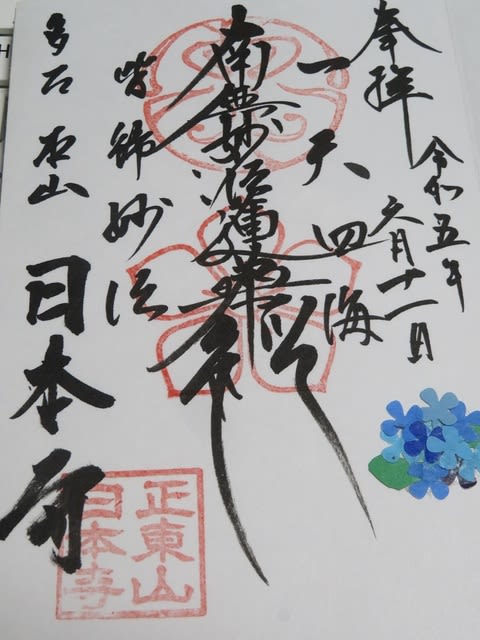 奉拝
令和五年
六月十一日
一天四海
南無妙法蓮華経
皆帰妙法
多古 本山
日本寺
正東山
日本寺
H